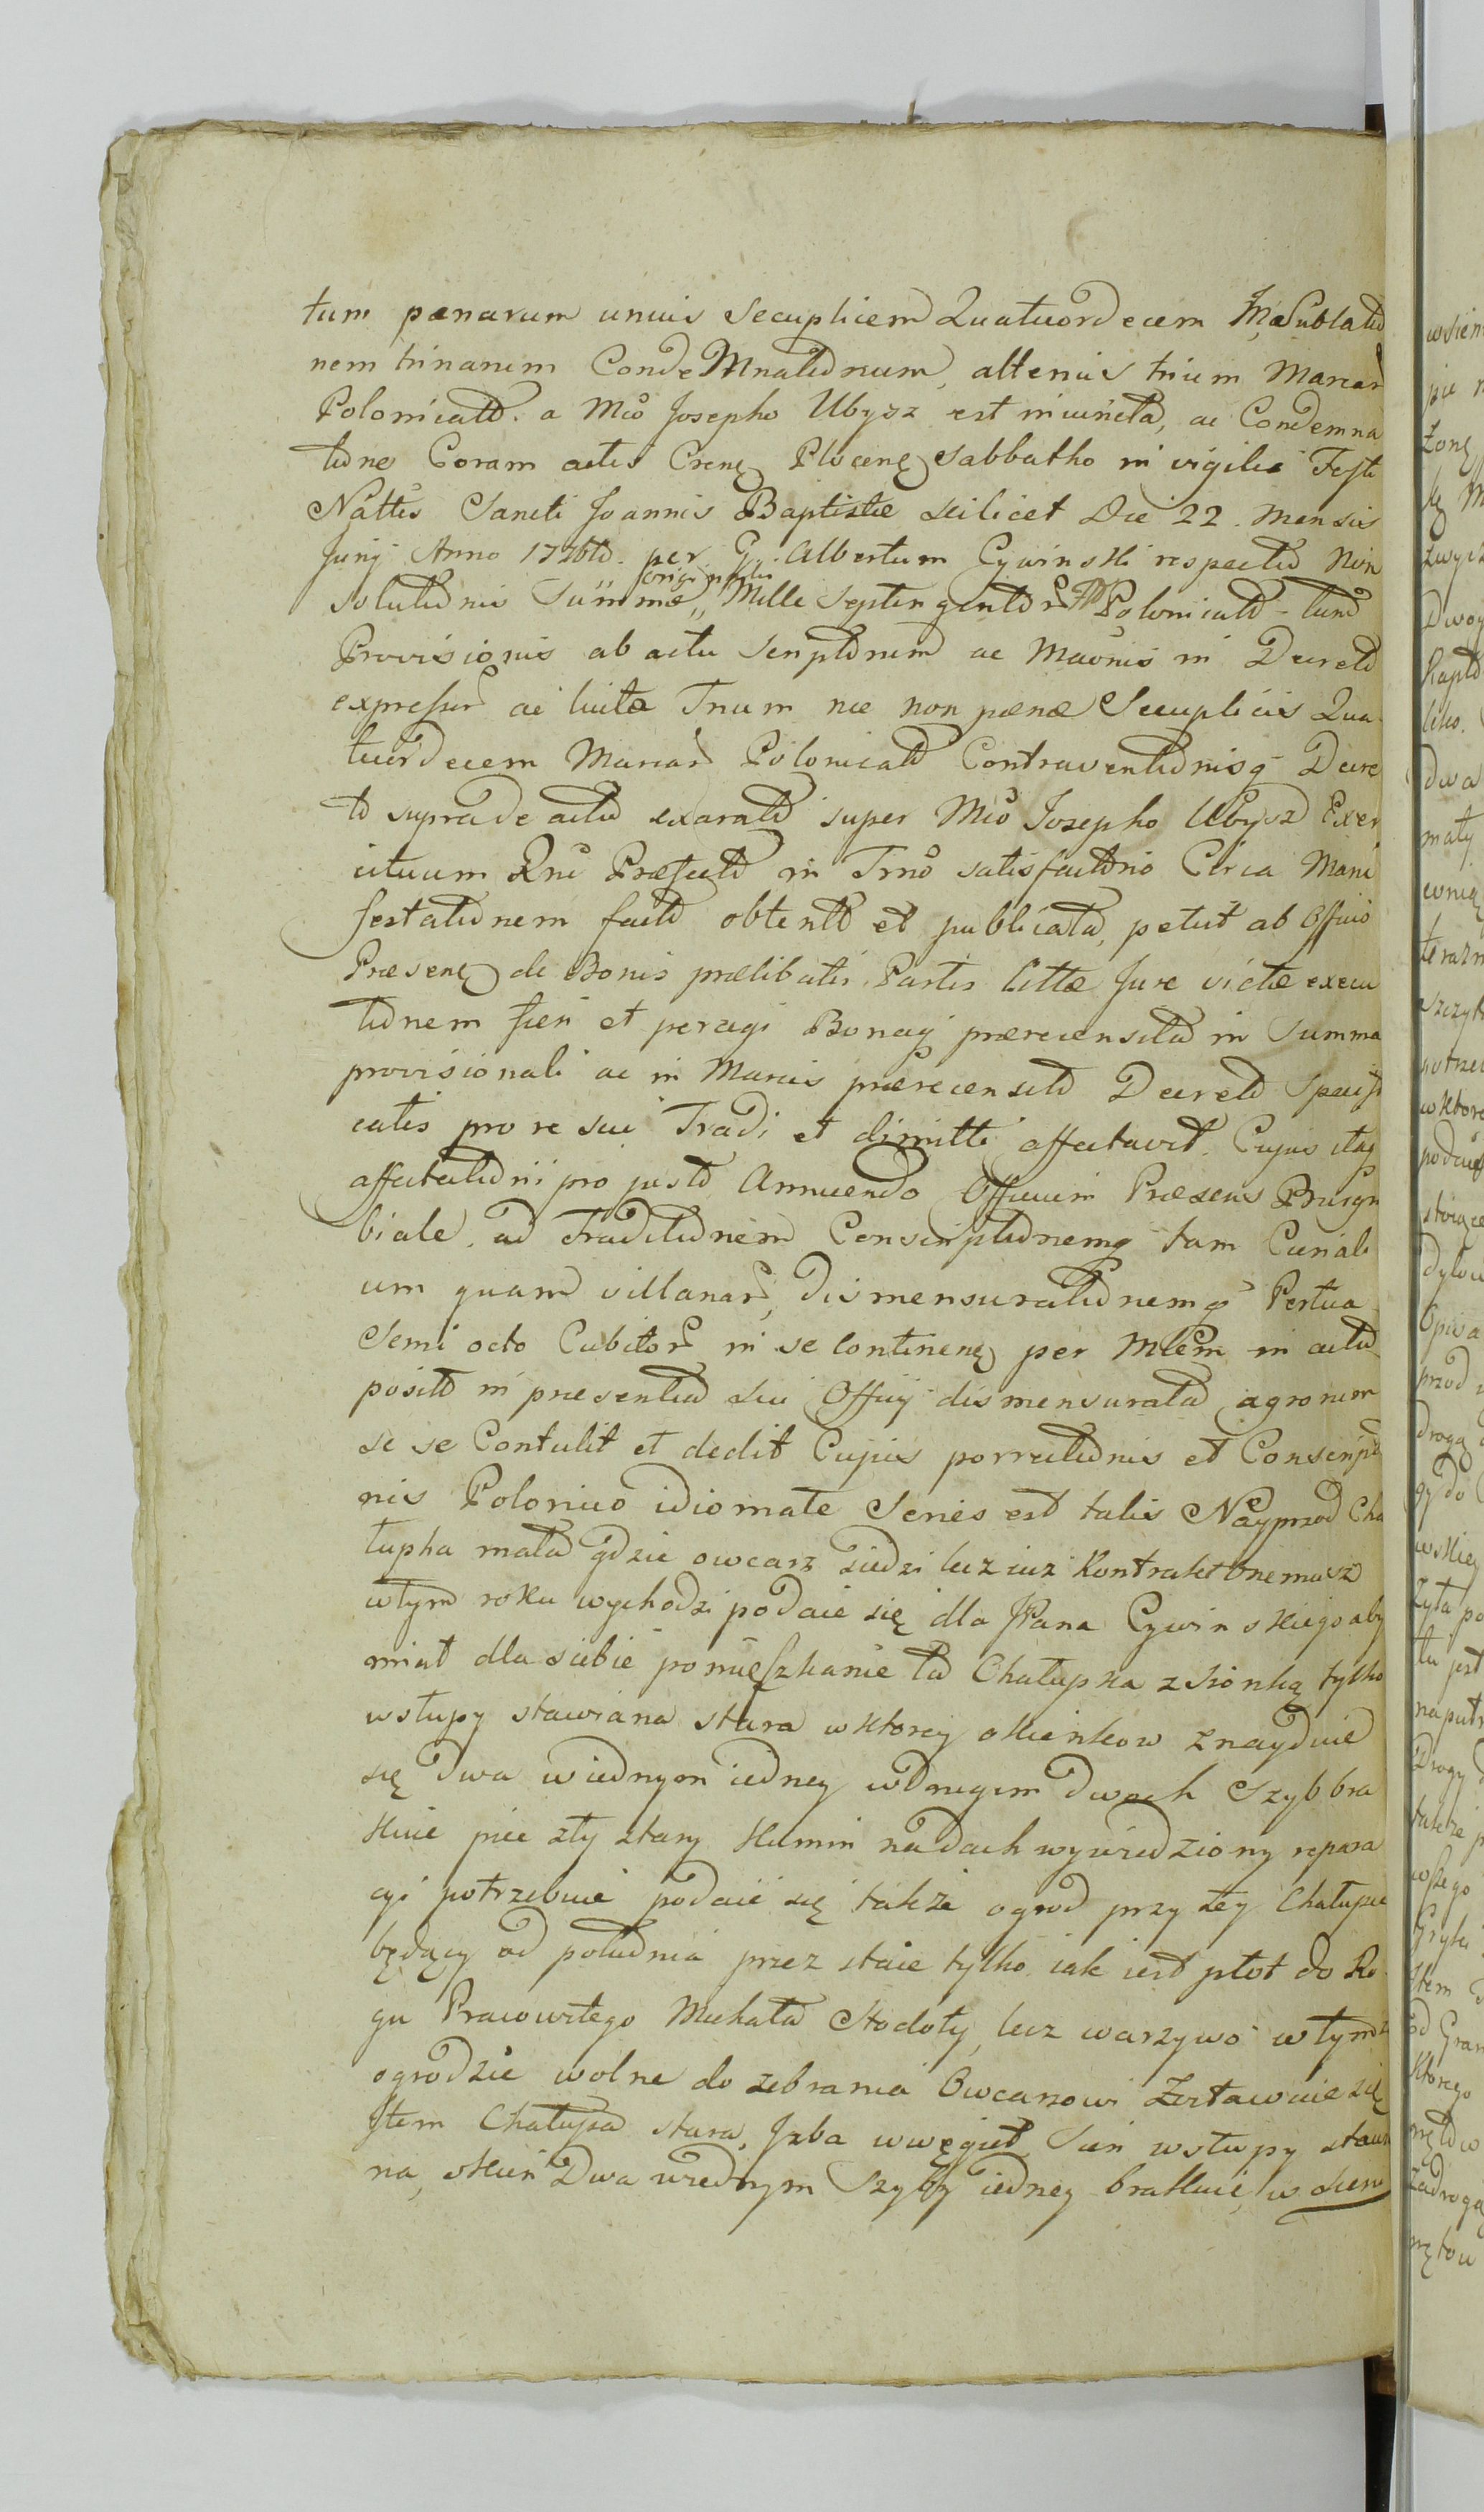 tum pænarum unius secuplicem Quatuordecem Sublatio
nem trinarum Condemnationum, alterius trium Marcar
Polonicalt. a Mco Josepho Ubysz est inuincta, ac Condemna
tione Coram actis Crens Plocens Sabbatho in vigilia Festi
Nattis Sancti Joannis Baptistæ scilicet Die 22. Mensis
Junij Anno 1776to. per G. Albertum Cywinski respectu Non
solutionis Summæ,, originalis Mille Septingentor Polonicalt - tum
Provisionis ab actu scriptorum ac in Decreto
expressur ac luitæ Trium nec non pænæ Secuplicis Qua
tuordecem Marcar Polonicalt Contraventionisq Decre
to supra de actu exarato super Mco Josepho Ubysz Exer
cituum Præfecto in Trno satisfactorio Circa Mani
festationem facto obtento et publicato, petiit ab Officio
Præsens de Bonis prælibatis Partis Cittæ Jure victæ execu
tionem fieri et peragi Bonaq prærecensita in Summa
provisionali ac in Marcis prærecensito Decreto Specifi
catis pro re sui Tradi et dimitti affectavit. Cujus itaq
affectationi pro justo Annuendo Officium Præsens Burgra
biale, ad Traditionem Conscriptionemq tam Curiali
um quam villanar, Dismensurationemq Pertica
Semi octo Cubitor in se continens per Mlem in actu
posito in præsentia sui Officij dismensurata agrorum
se se Contulit et dedit Cujus porrectionis et Conscriptio
nis Polonico idiomate Series est talis Nayprzod Cha
łupka mała gdzie owcarz siedzi lecz iuz Kontrakt
w tym roku wychodzi podaie się dla JPana Cywinskiego aby
miał dla siebie pomięszkanie ta Chałupka z sionką tylko
w słupy stawiana stara w ktorey okienkow znayduie
się dwa w iednym iedney w drugim dwoch Szyb bra
kuie piec zły stary Kumin na dach wywiedziony repara
cyi potrzebuie podaie się także ogrod przy tey Chałupie
będący od południa przez staie tylko iak iest płot do Ro
gu Pracowitego Michała Stodoły, lecz warzywo w tymz
ogrodzie wolne do zebrania Owcarzowi Zostawuie się
Item Chałupa stara, Izba w węgieł Sien w słupy stawia
na, okien Dwa w iednym Szyby iedney brakuie, w sieni